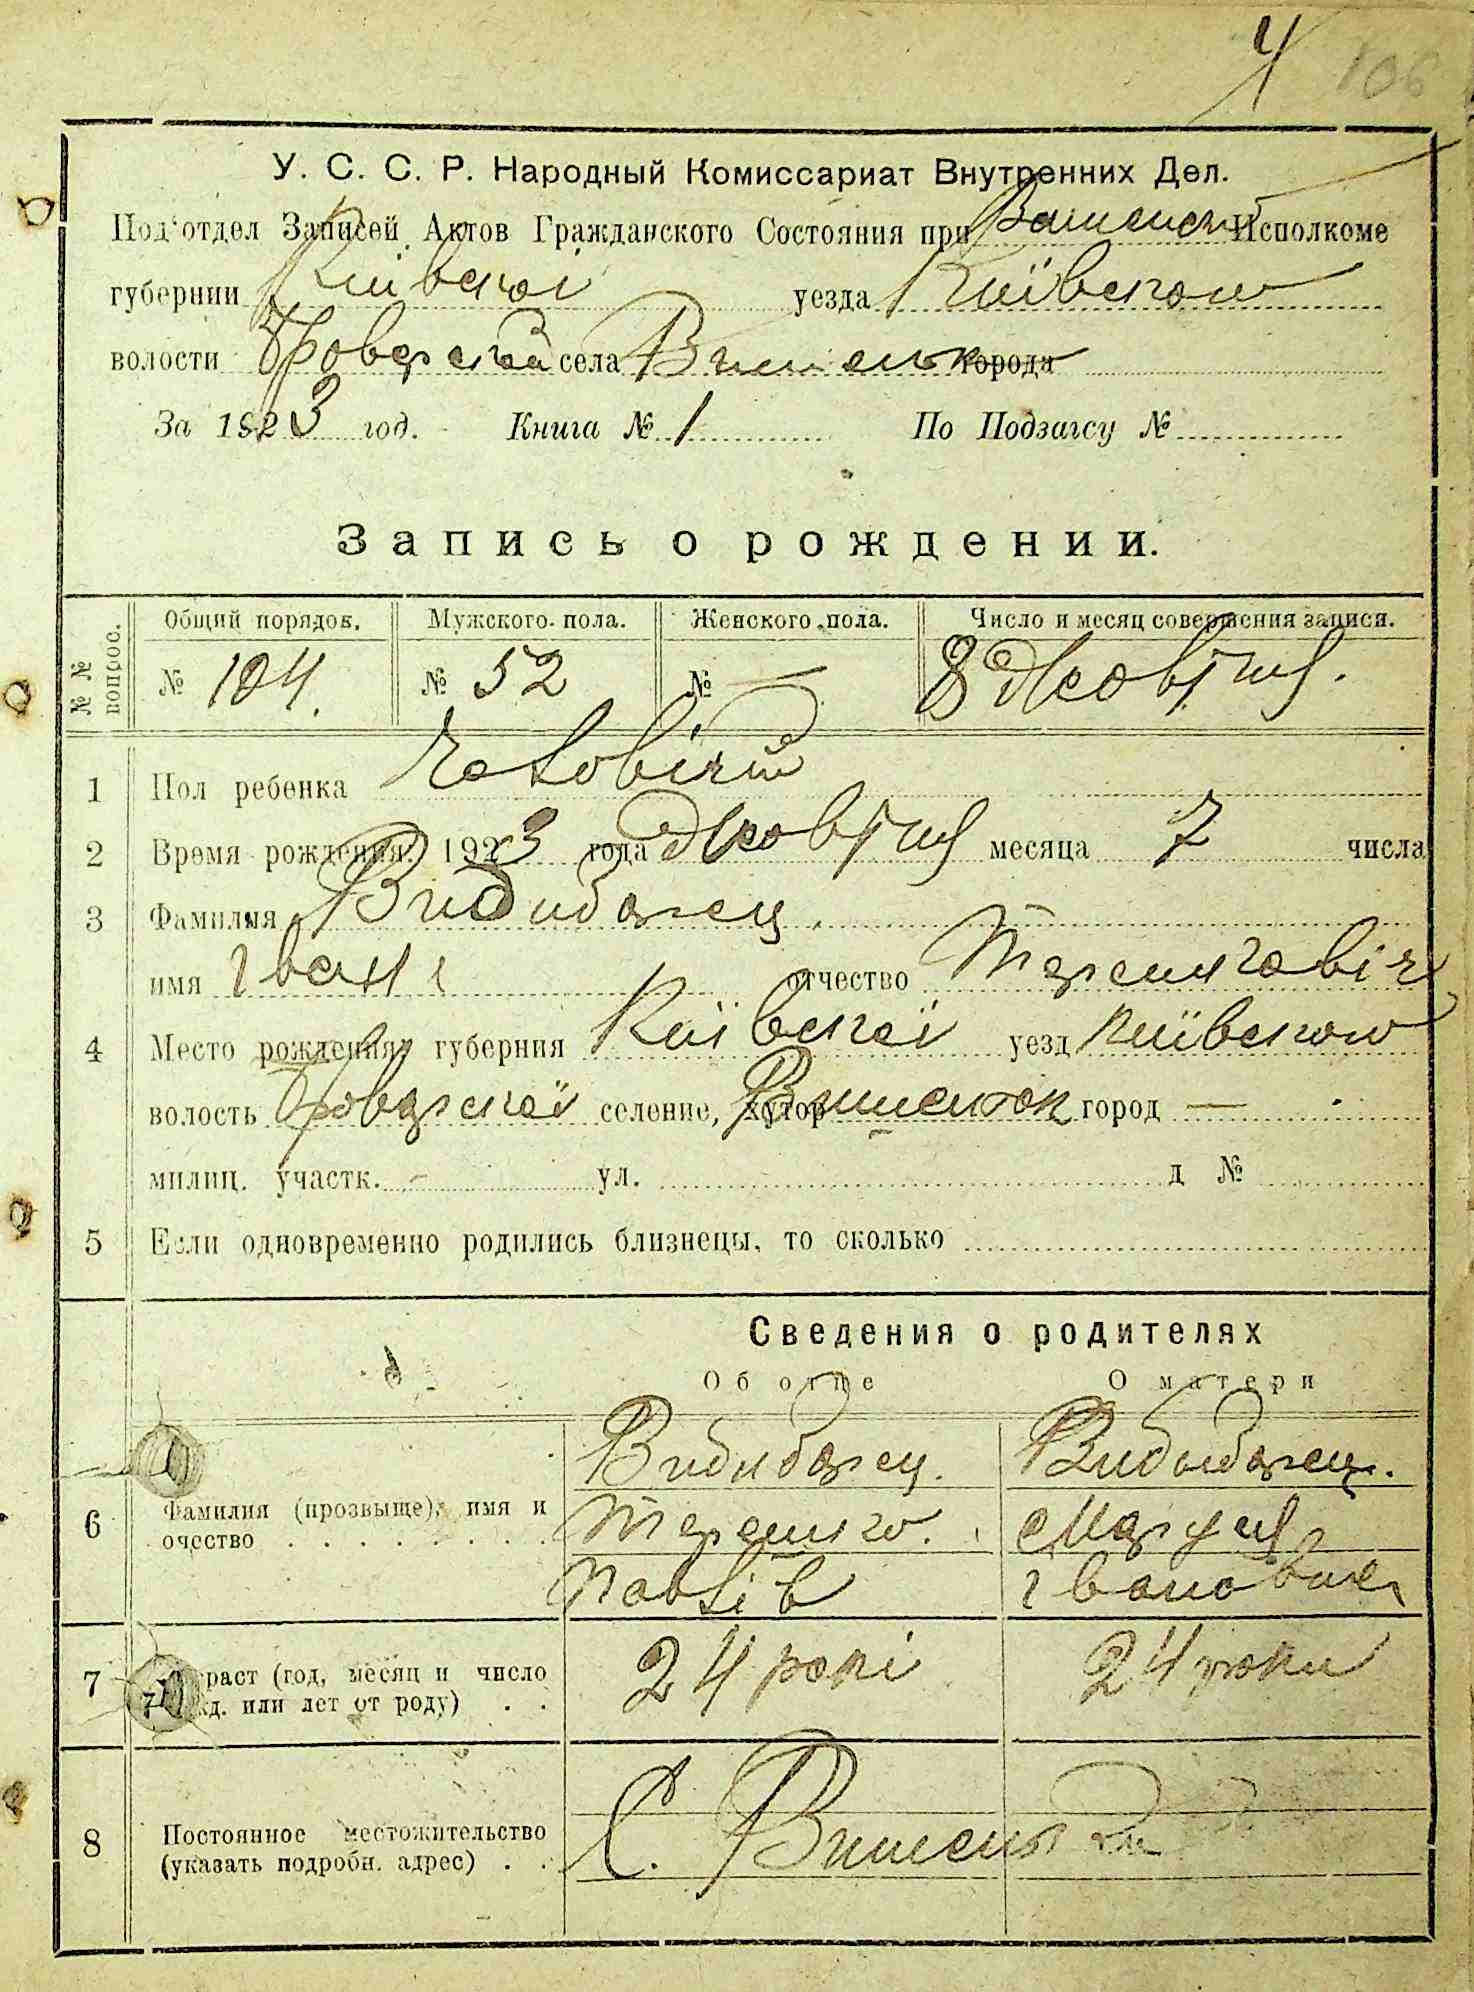 4 106
У. С. С. Р. Народный Комиссариат Внутренних Дел.
Под'отдел Записей Актов Гражданского Состояния при Исполкоме
губернии Київскоі уезда Київском
волости села города
За 1923 год. Книга № 1 По Подзагсу №
Запись о рождении.
№ № вопрос. Общий порядов. Мужского пола. Женского пола. Число и месяц совершения записи.
№ 104. № 52 № — 8 Жовтня.
1 Пол ребенка Чоловічий
2 Время рождения: 1923 года Жовтня месяца 7 числа
3 Фамилия Видибарец.
имя Іван отчество
4 Место рождения: губерния Київскоі уезд Київском
волость Броварскоі селение, хутор город —
милиц. участк. - ул. д №
5 Если одновременно родились близнецы, то сколько
Сведения о родителях
Об отце О матери
6 Фамилия (прозвыще), имя и Видибарец. Видибарец.
очество . . . . . . . . . Мария
Івановна
7 раст (год, месяц и число 24 рокі 24 роки
жд. или лет от роду) . .
8 Постоянное местожительство С.
(указать подробн. адрес) . .